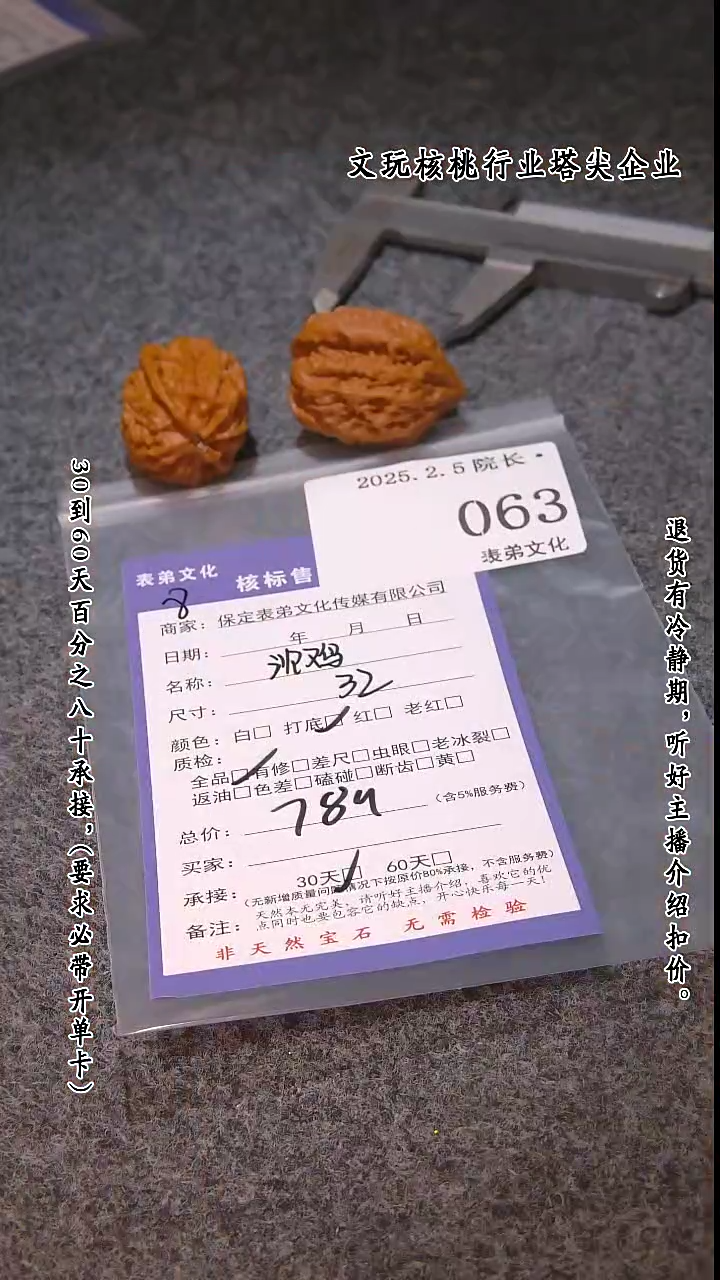 文玩核桃行业塔尖企业
30到60天百分之八十承接，（要求必带开单卡）
退货有冷静期，听好主播介绍扣价。
2025.2.5院长·
063
表弟文化
表弟文化 核标售
8
商家：保定表弟文化传媒有限公司
日期： 年 月 日
名称：
尺寸：32
颜色：白□ 打底□ 红□ 老红□
质检：
全品□有修□差尺□虫眼□老冰裂□
返油□色差□磕碰□断齿□黄□
总价：789（含5%服务费）
买家：
承接：30天□ 60天□
（无新增质量问题情况下按原价80%承接，不含服务费）
备注：天然本无完美，请听好主播介绍，喜欢它的优
点同时也要包容它的缺点，开心快乐每一天！
非天然宝石 无需检验